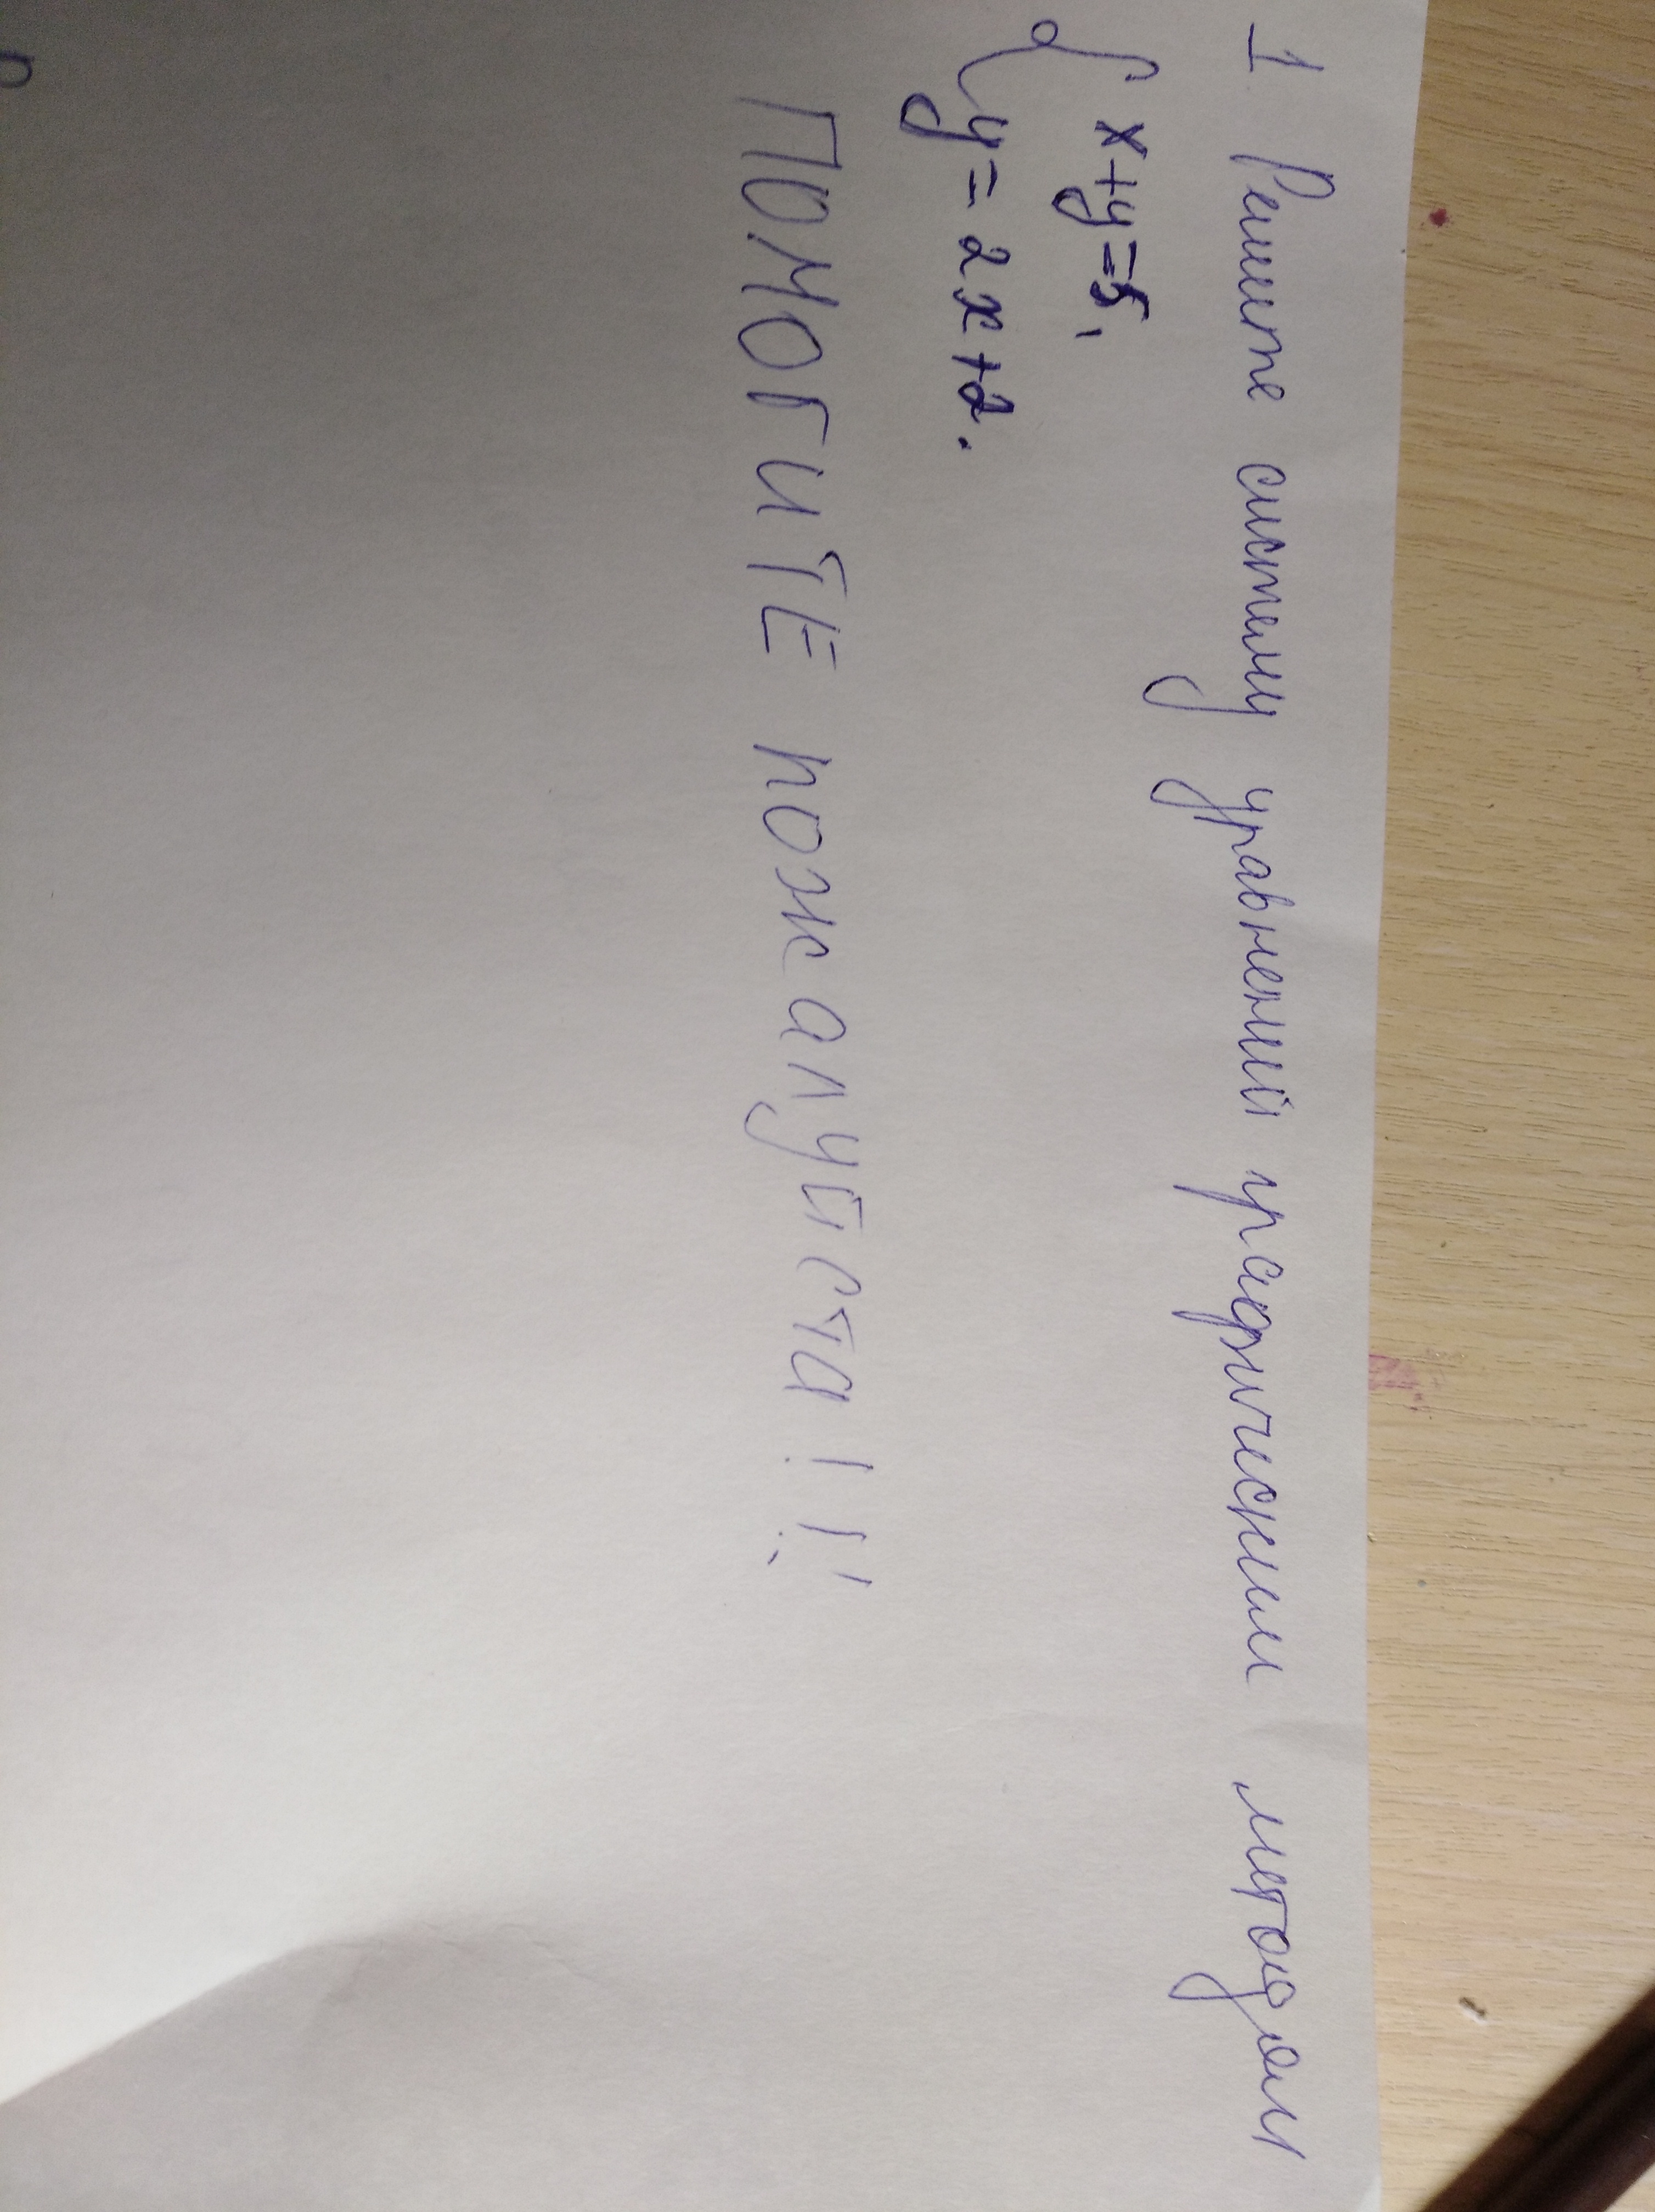 1 Решите систему уравнений графическим методом
{ x+y=5,
y=2x+2.
ПОМОГИТЕ пожалуйста!!!